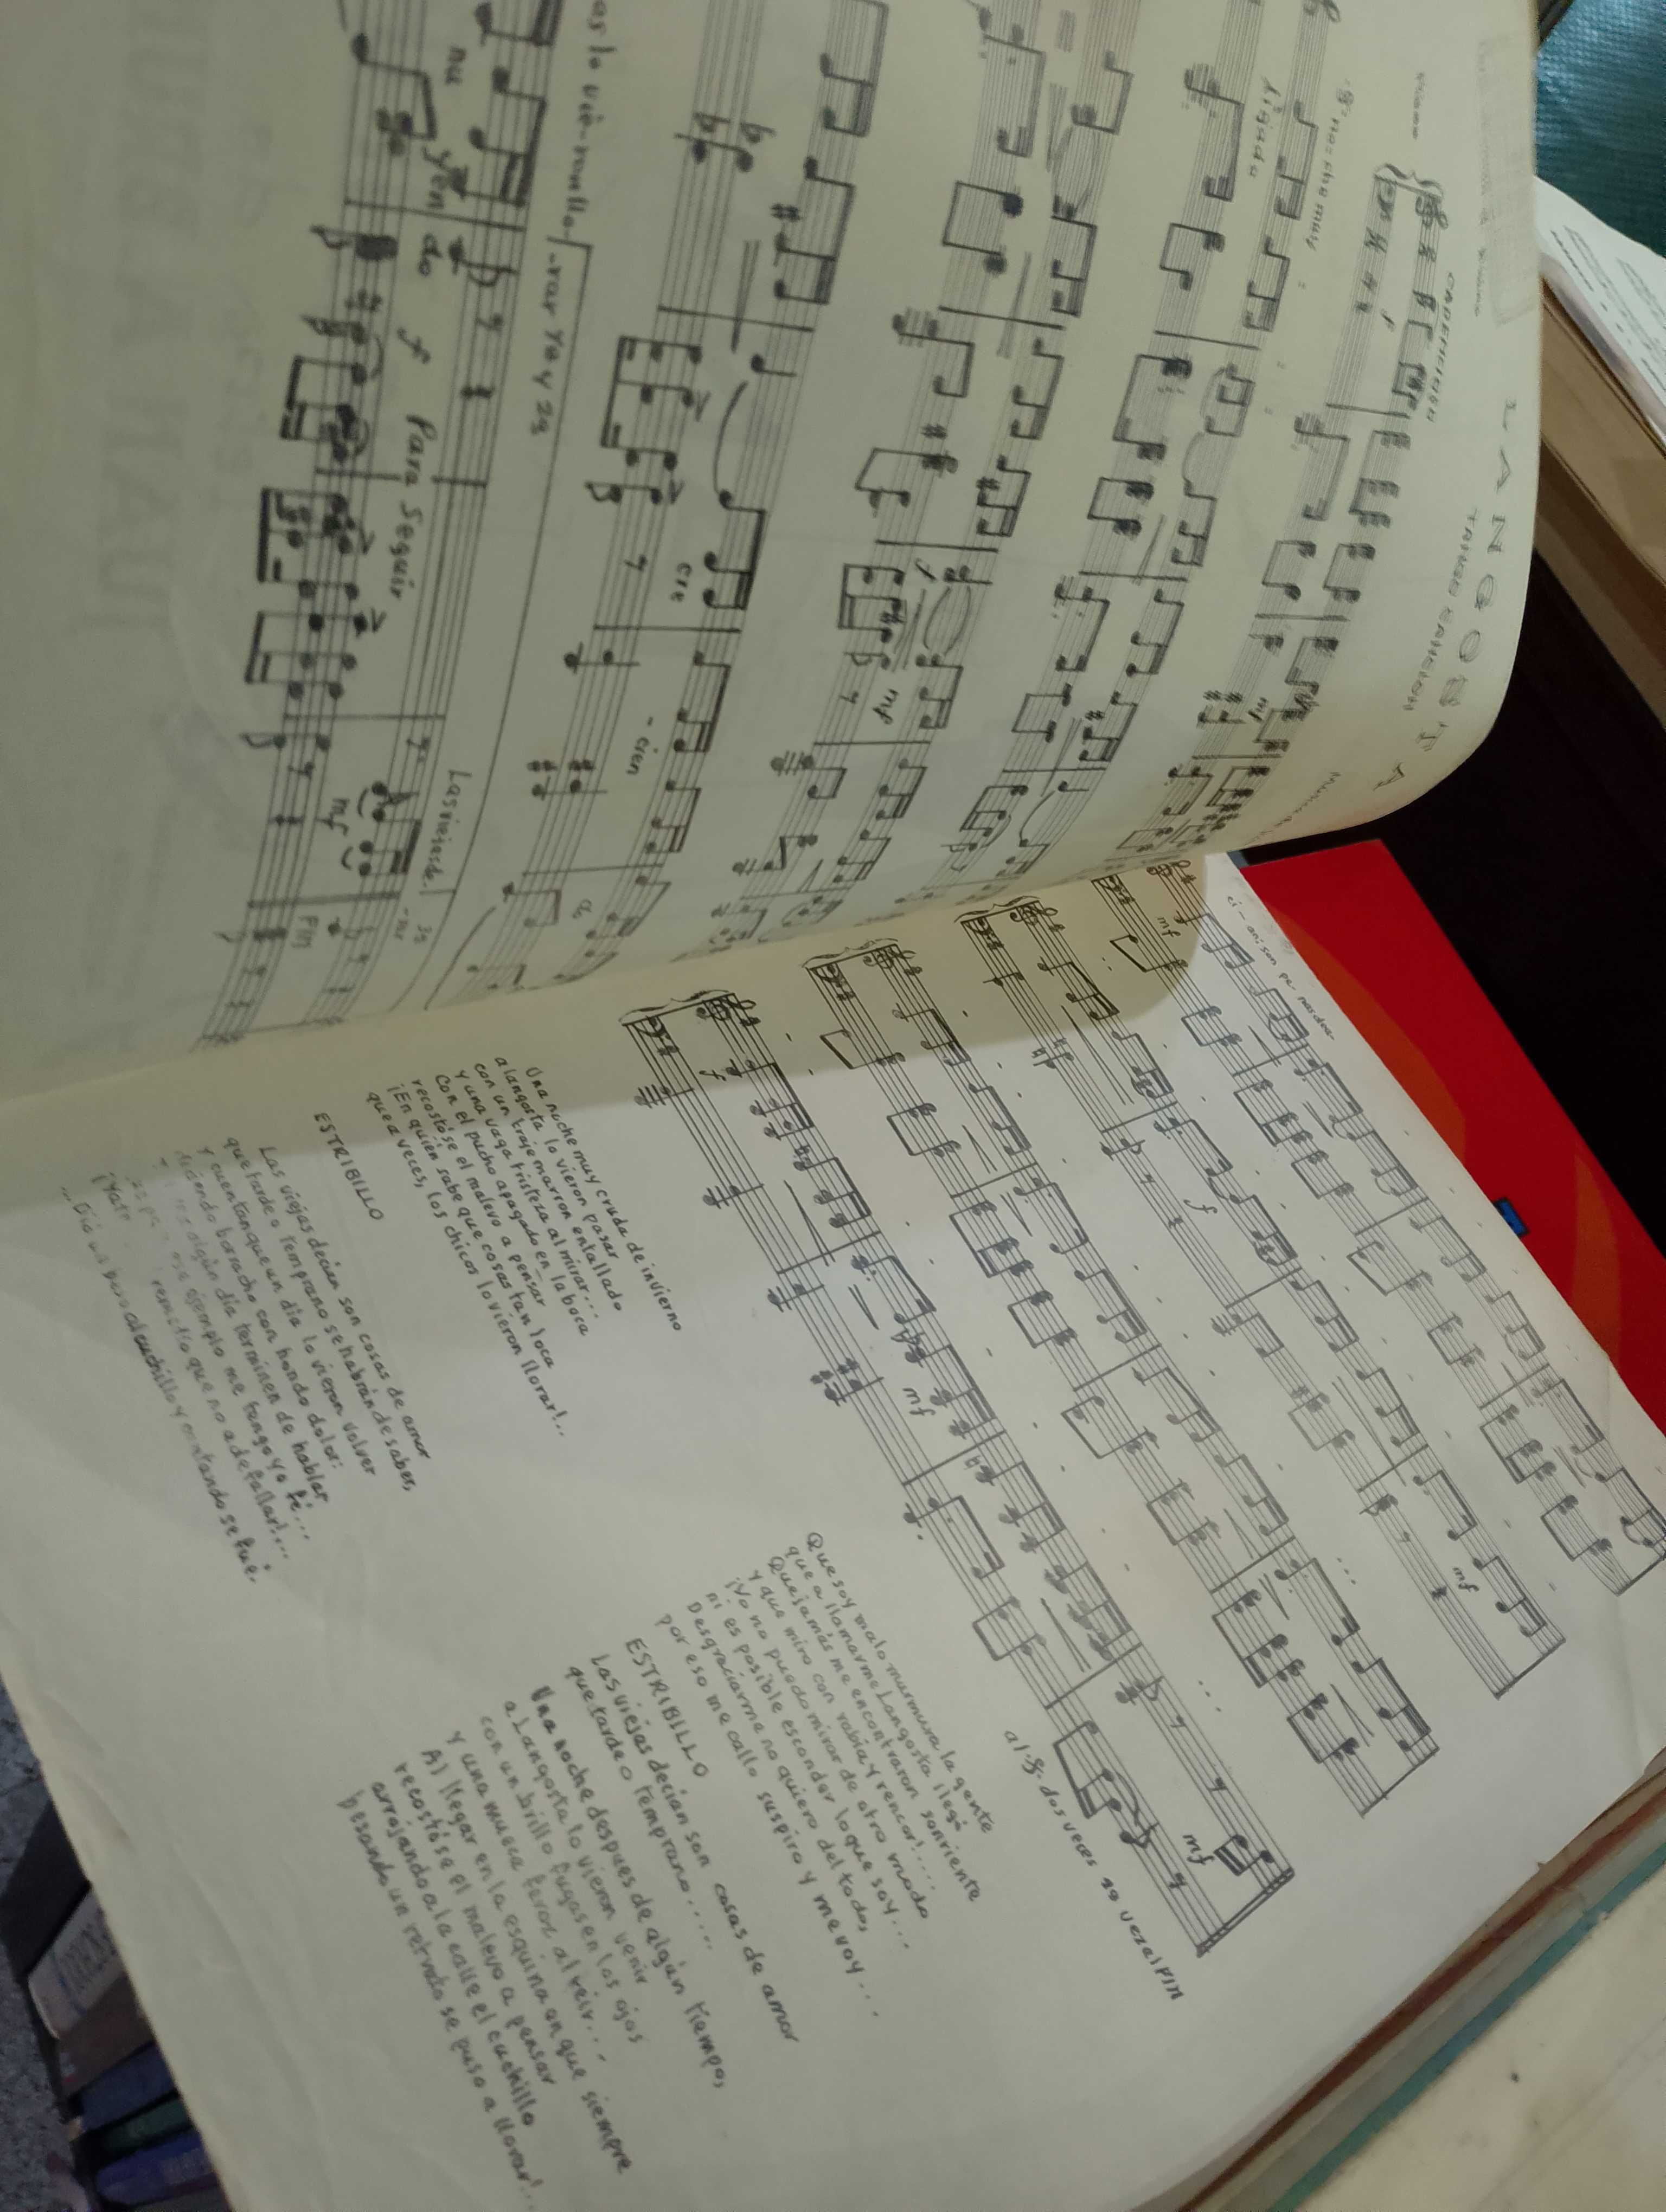 LANGOSTA
TANGO CANCION
Una noche muy
ligado
f
mf
f
mf
cre
- cien
do
as lo vié-ronllo-
-rar 1ª y 2ª
nu yen do f Para Seguir
Las viejas de-
mf
3ª
-rar
FIN
ci-an: son
mf
f
mf
f
mf
mf
al 𝄋 dos veces
vez al FIN
Una noche muy cruda de invierno
a langosta lo vieron pasar
con un traje marrón entallado
y una vaga tristeza al mirar...
Con el pucho apagado en la boca
recostóse el malevo a pensar
¡En quién sabe que cosas tan loca
que a veces, los chicos lo vieron llorar!..
ESTRIBILLO
Las viejas decian son cosas de amor
que tarde o temprano se habrán de saber,
y cuentan que un día lo vieron volver
diciendo borracho con hondo dolor:
algún día terminen de hablar
ese ejemplo me tengo yo fé...
que no a de fallar!...
...Dió un beso al cuchillo y matando se fué.
Que soy malo murmura la gente
que a llamarme Langosta llegó
Que jamás me encontraron sonriente
y que miro con rabia y rencor!....
¡Yo no puedo mirar de otro modo
ni es posible esconder lo que soy...
Desgraciarme no quiero del todo,
por eso me callo suspiro y me voy...
ESTRIBILLO
Las viejas decian son cosas de amor
que tarde o temprano.....
Una noche despues de algún tiempo,
a Langosta lo vieron venir
con un brillo fugas en los ojos
y una mueca feroz al reir...
Al llegar en la esquina en que siempre
recostóse el malevo a pensar
arrojando a la calle el cuchillo
besando un retrato se puso a llorar!..